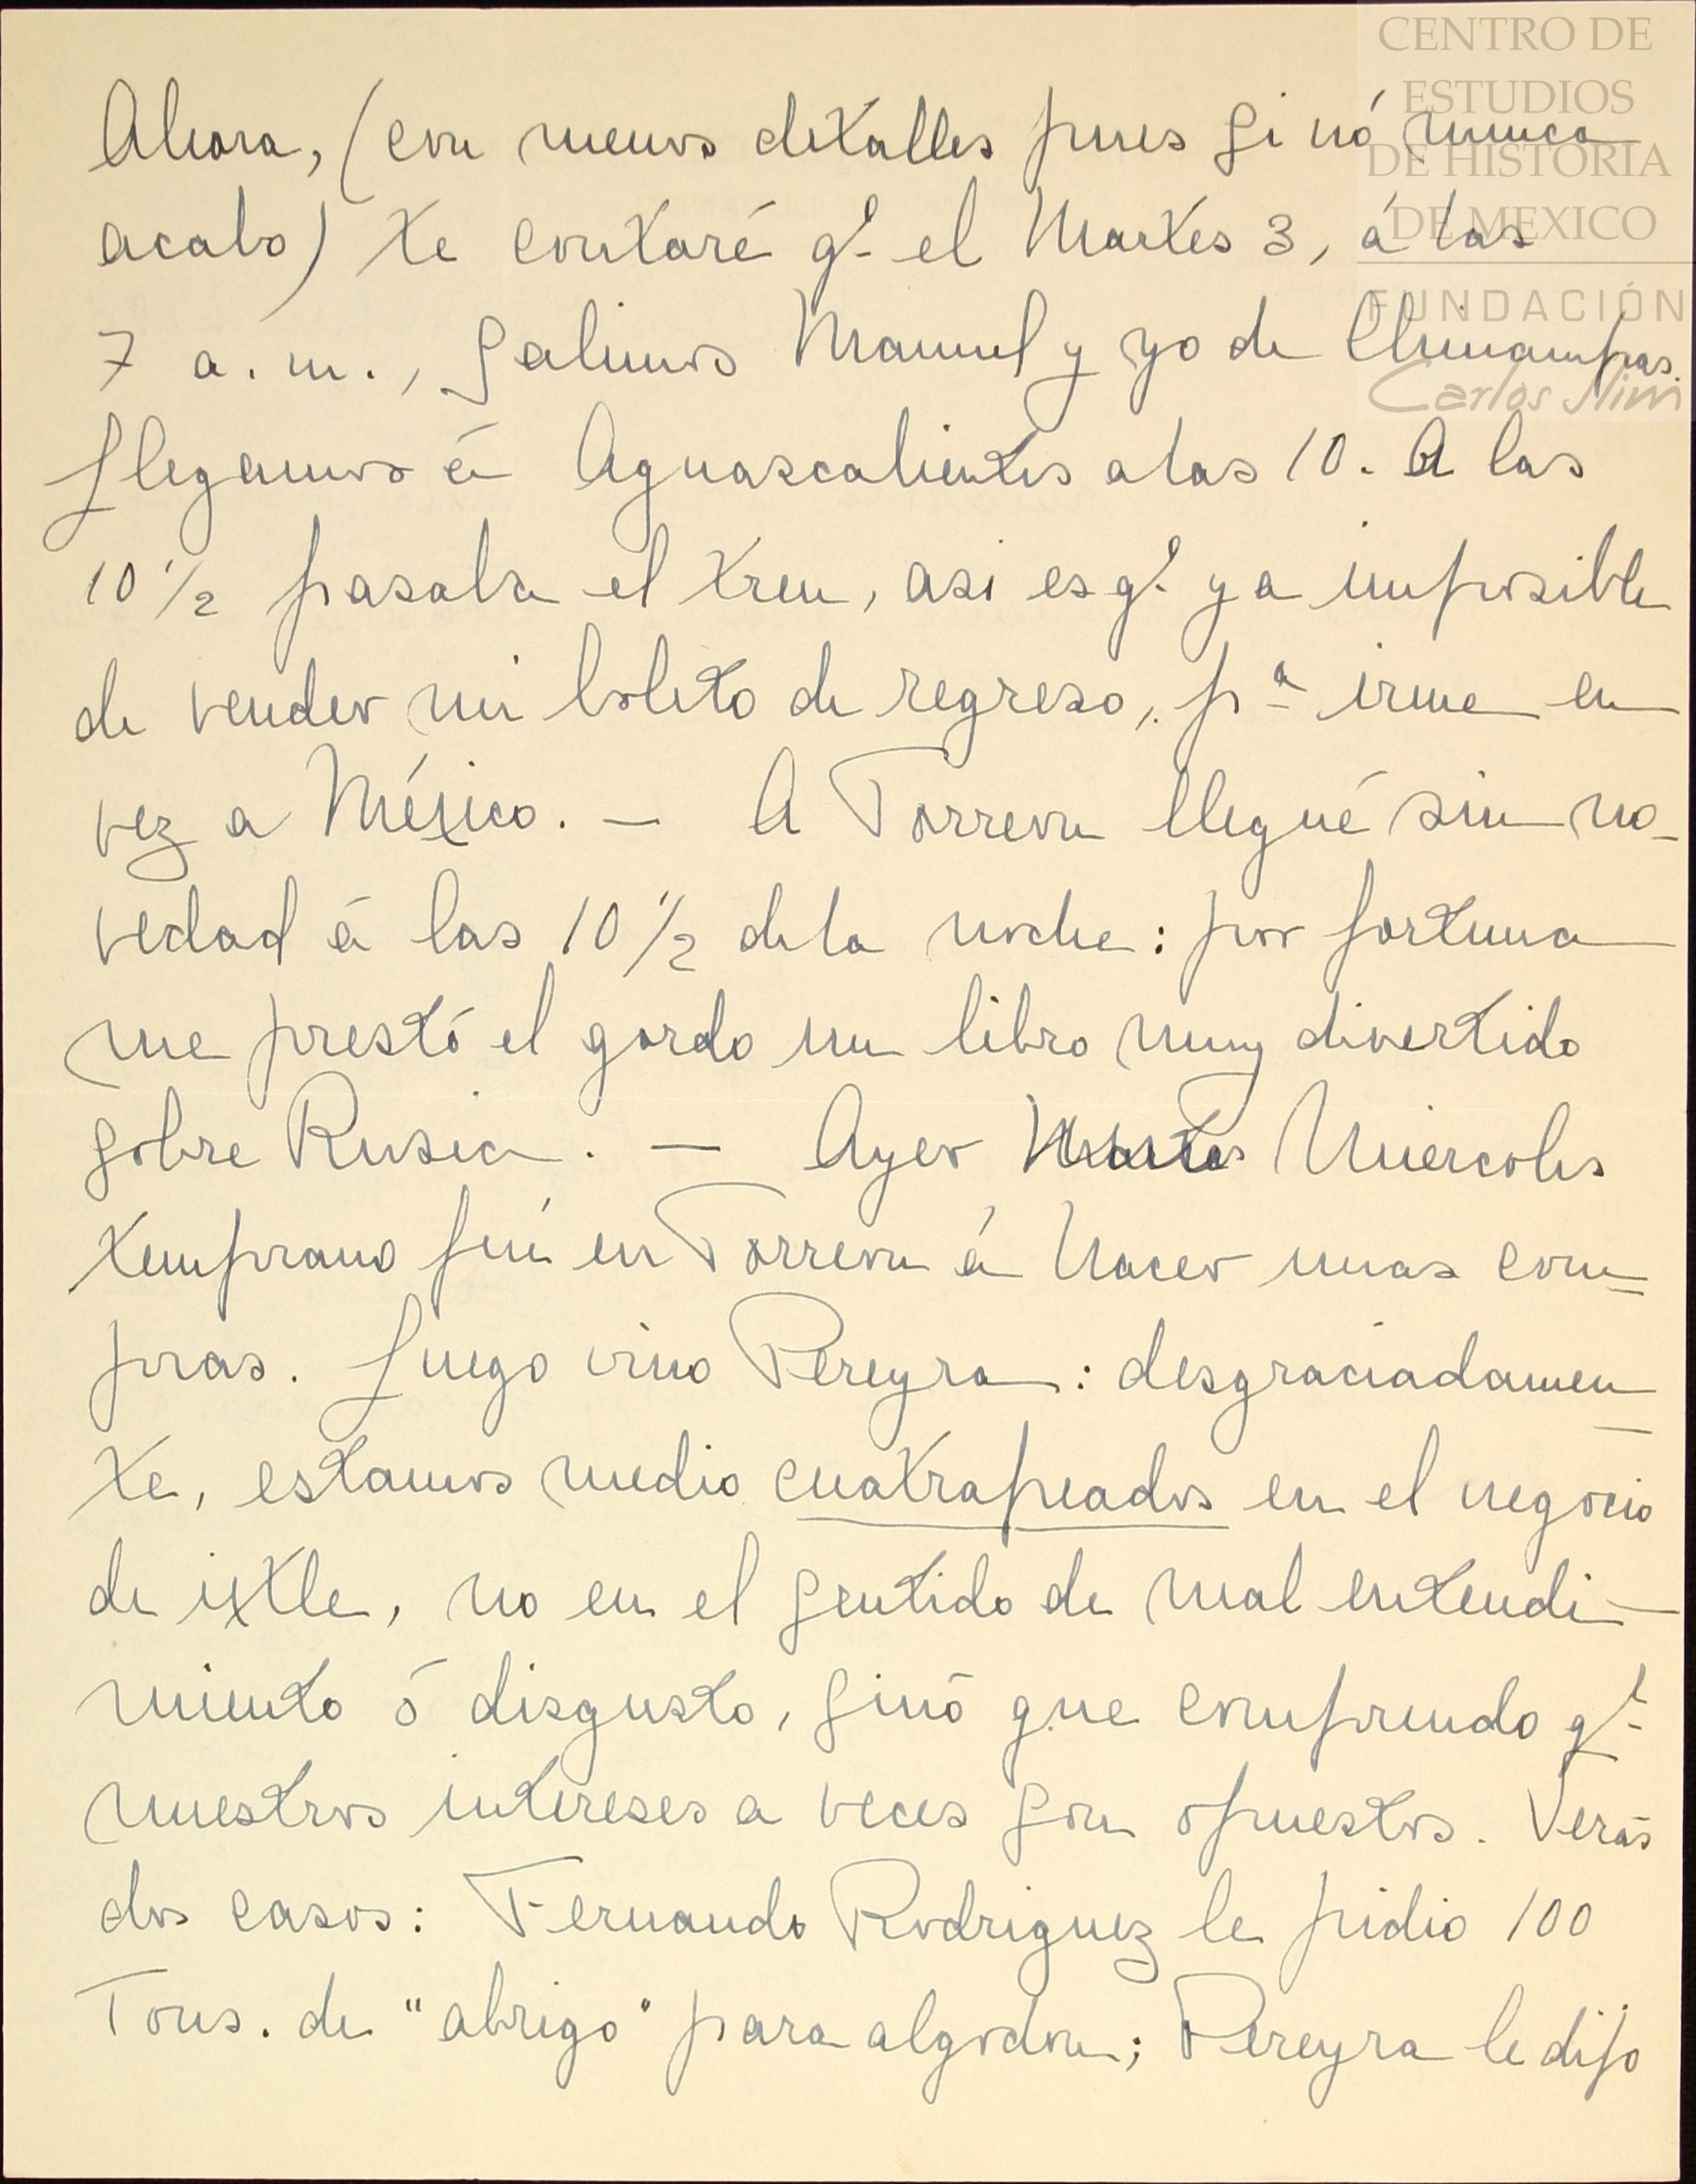 CENTRO DE
ESTUDIOS
DE HISTORIA
DE MEXICO
FUNDACIÓN
Carlos Slim
Ahora, (con menos detalles pues si nó nunca
acabo) te contaré qe el Martes 3, á las
7 a.m., salimos Manuel y yo de Chinampas.
Llegamos á Aguascalientes a las 10. A las
10 1/2 pasaba el tren, asi es qe ya imposible
de vender mi boleto de regreso, pa irme en
vez a México. — A Torreon llegué sin no-
vedad á las 10 1/2 de la noche: por fortuna
me prestó el gordo un libro muy divertido
sobre Rusia. — Ayer Martes Miercoles
temprano fuí en Torreon á hacer unas com=
pras. Luego vino Pereyra: desgraciadamen
te, estamos medio cuatrapeados en el negocio
de ixtle, no en el sentido de mal entendi-
miento ó disgusto, sinó que comprendo qe
nuestros intereses a veces son opuestos. Verás
dos casos: Fernando Rodriguez le pidio 100
Tons. de "abrigo" para algodon; Pereyra le dijo